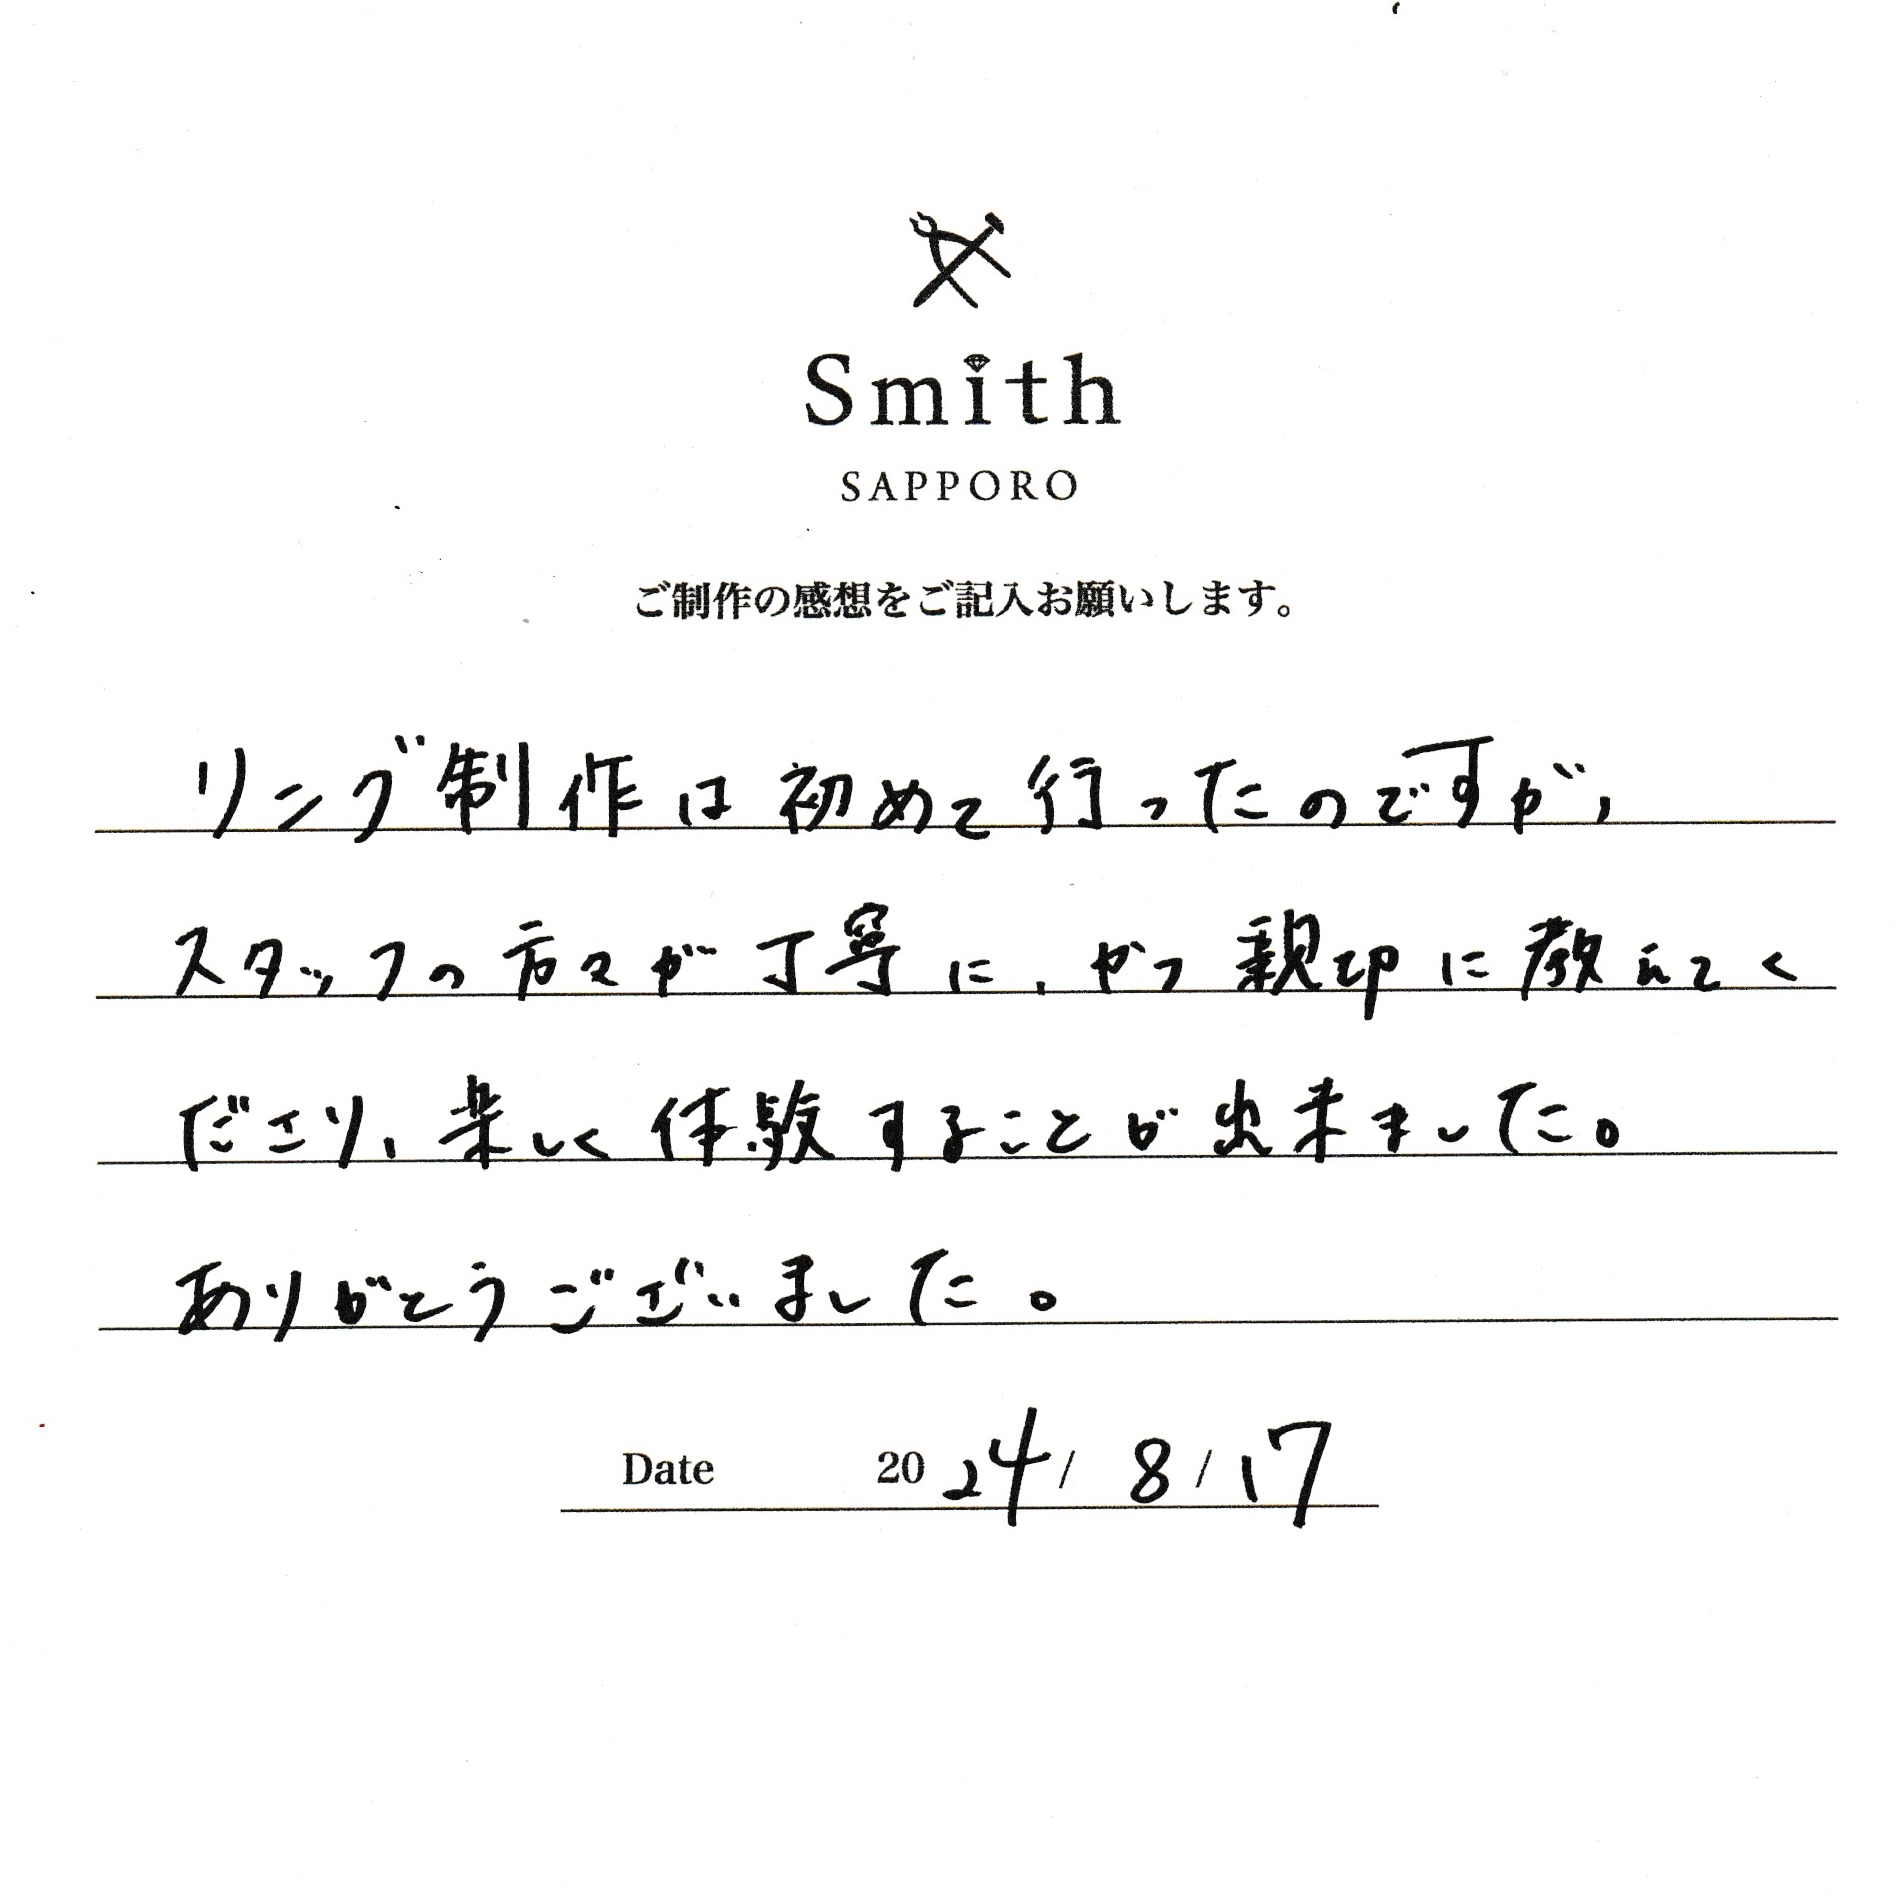 Smith
SAPPORO
ご制作の感想をご記入お願いします。
リング制作は初めて行ったのですが、
スタッフの方々が丁寧に、かつ親切に教えてく
ださり、楽しく体験することが出来ました。
ありがとうございました。
Date 2024/8/17